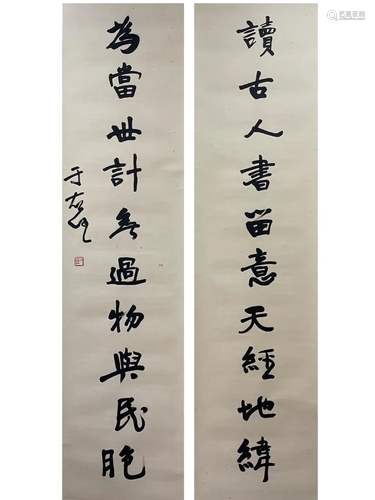 讀古人書留意天經地緯
為當世計無過物與民胞
于右任